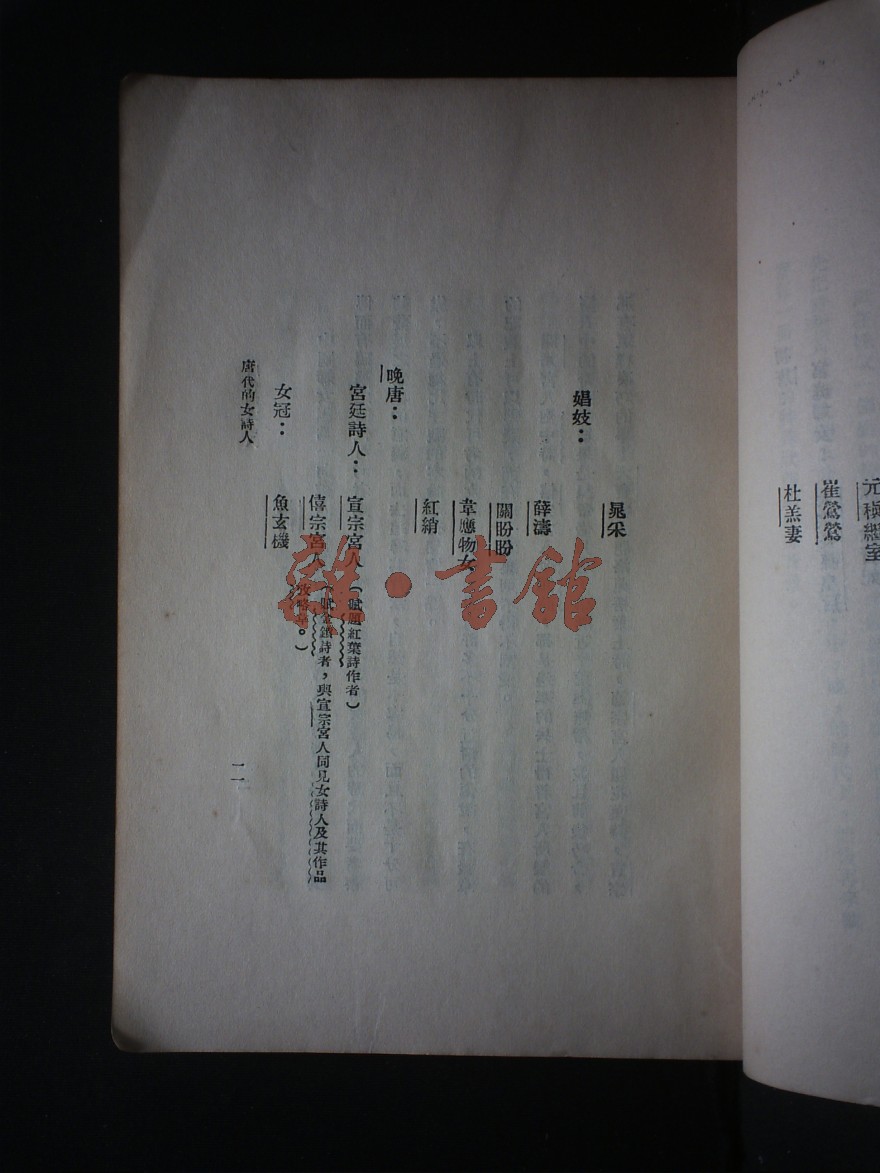 元稹繼室
崔鶯鶯
杜羔妻
晁采
娼妓：
薛濤
關盼盼
韋應物女
紅綃
晚唐：
宮廷詩人：宣宗宮人（賦題紅葉詩作者）
僖宗宮人（賦金鎖詩者，與宣宗宮人同見女詩人及其作品
攷略。）
女冠：魚玄機
唐代的女詩人
一一
雜·書館